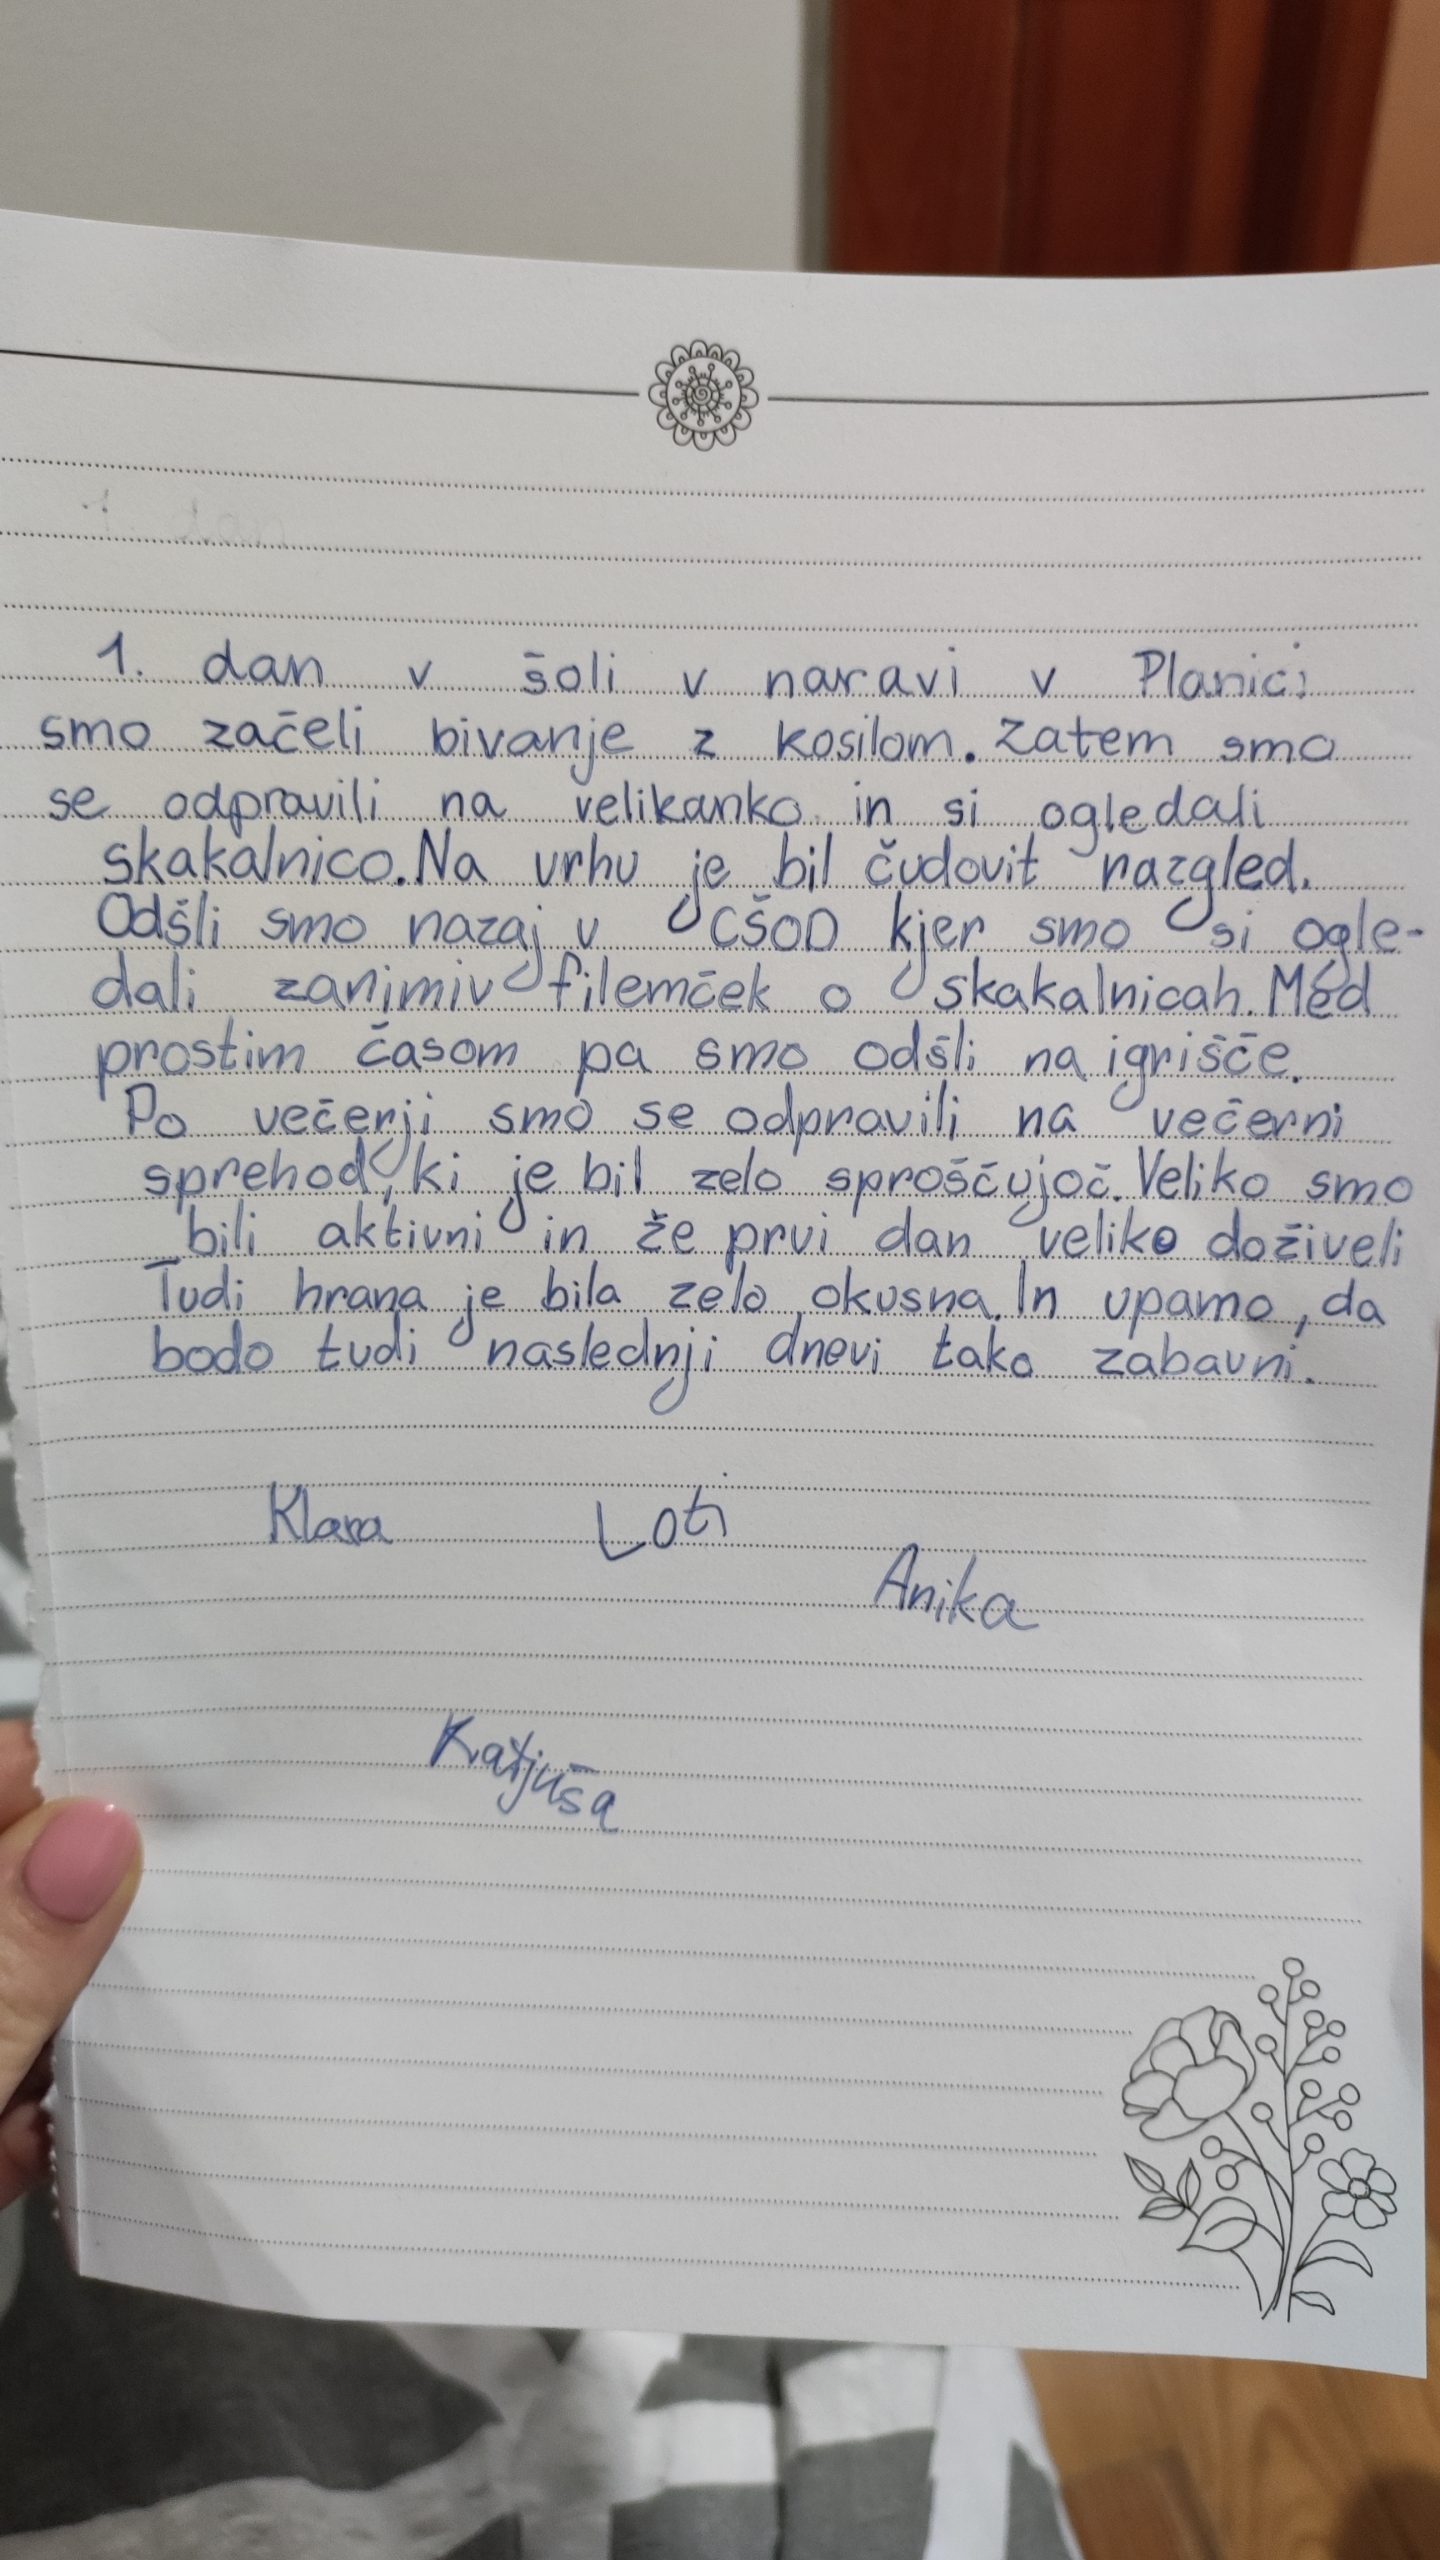 1. dan v šoli v naravi v Planici
smo začeli bivanje z kosilom. Zatem smo
se odpravili na velikanko in si ogledali
skakalnico. Na vrhu je bil čudovit razgled.
Odšli smo nazaj v CŠOD kjer smo si ogle-
dali zanimiv filemček o skakalnicah. Med
prostim časom pa smo odšli na igrišče.
Po večerji smo se odpravili na večerni
sprehod, ki je bil zelo sproščujoč. Veliko smo
bili aktivni in že prvi dan veliko doživeli
Tudi hrana je bila zelo okusna. In upamo, da
bodo tudi naslednji dnevi tako zabavni.
Klara Loti
Anika
Katjuša